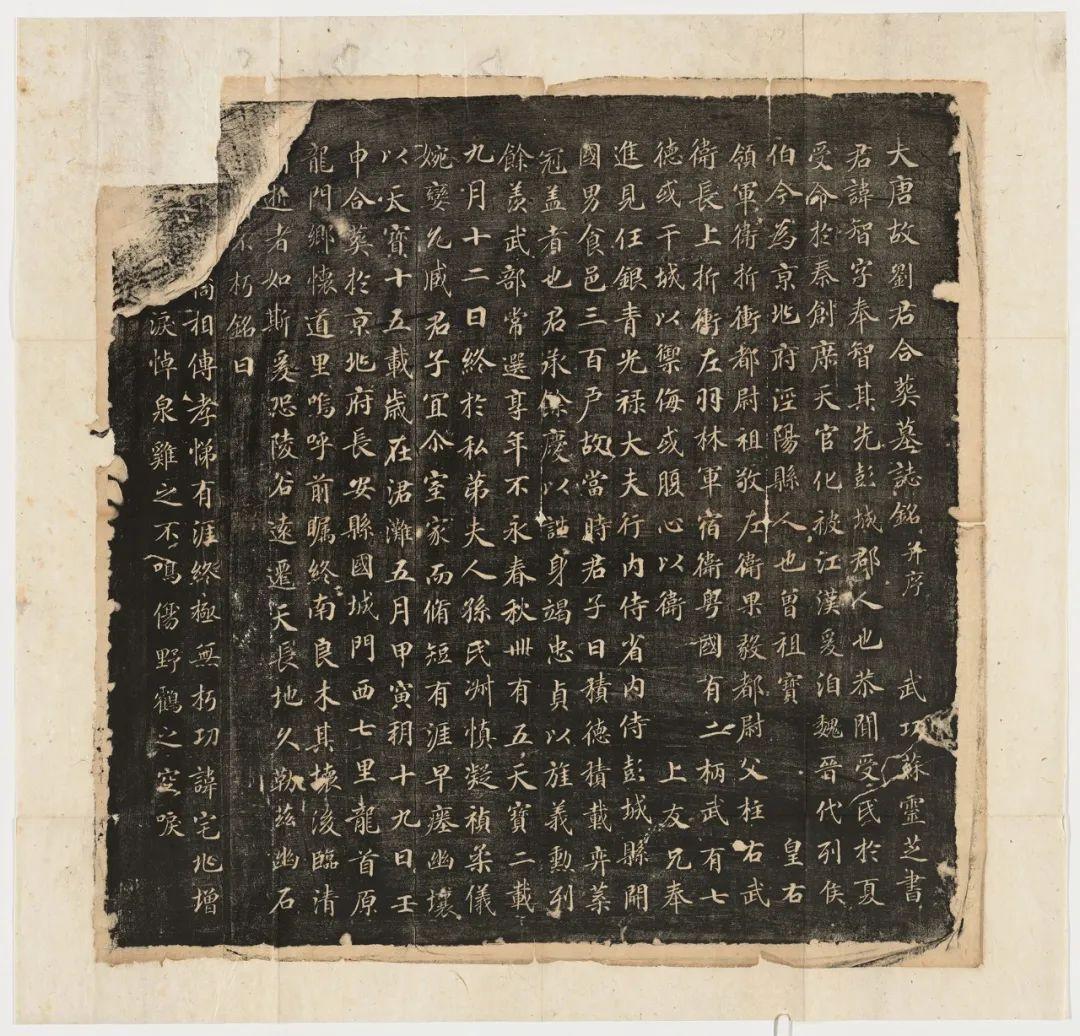 大唐故劉君合葬墓誌銘并序 武功蘇靈芝書
君諱智字奉智其先彭城郡人也恭聞受氏於夏
受命於秦創庶天官化被江漢爰洎魏晉代列侯
伯今為京兆府涇陽縣人也曾祖寶 皇右
領軍衛折衝都尉祖敬左衛果毅都尉父柱右武
衛長上折衝左羽林軍宿衛粤國有二柄武有七
德或干城以禦侮或腹心以衛 上友兄奉
進見任銀青光祿大夫行內侍省內侍彭城縣開
國男食邑三百戶故當時君子日積德積載弈葉
冠蓋者也君承餘慶以謹身竭忠貞以旌義勳列
餘羨武部常選享年不永春秋卌有五天寶二載
九月十二日終於私第夫人孫氏淑慎凝禎柔儀
婉孌允臧君子宜尒室家而脩短有涯早瘞幽壤
以天寶十五載歲在涒灘五月甲寅朔十九日壬
申合葬於京兆府長安縣國城門西七里龍首原
龍門鄉懷道里嗚呼前矚終南良木其壞後臨清
逝者如斯爰恐陵谷遠遷天長地久勒茲幽石
不朽銘曰
相傳孝悌有涯終極無朽功諱宅兆增
淚悼泉雞之不鳴傷野鶴之空唳